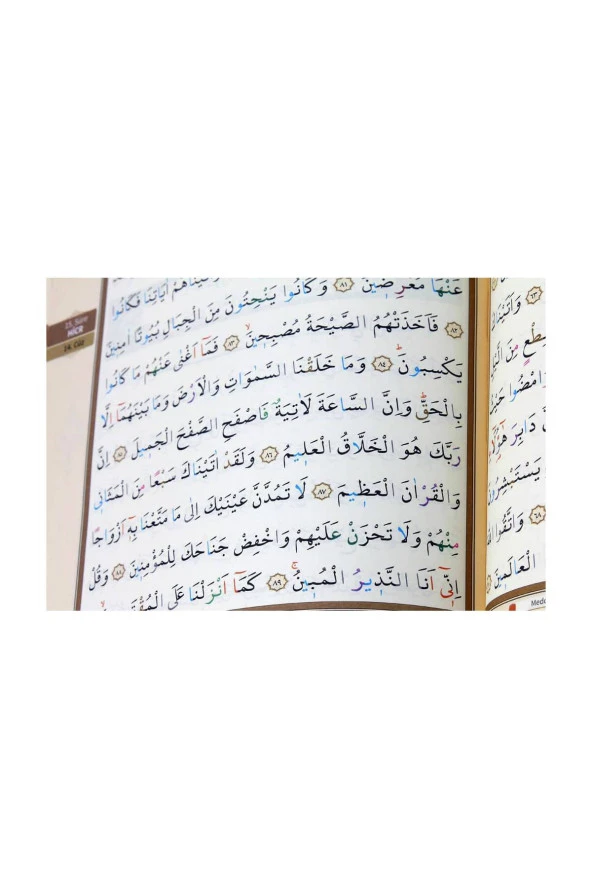 15. Sûre
HİCR
14. Cüz
اٰيَاتِنَا فَكَانُوا
عَنْهَا مُعْرِضِينَ ﴿٨١﴾ وَكَانُوا يَنْحِتُونَ مِنَ الْجِبَالِ بُيُوتًا اٰمِنِينَ
﴿٨٢﴾ فَاَخَذَتْهُمُ الصَّيْحَةُ مُصْبِحِينَۙ ﴿٨٣﴾ فَمَٓا اَغْنٰى عَنْهُمْ مَا كَانُوا
يَكْسِبُونَۜ ﴿٨٤﴾ وَمَا خَلَقْنَا السَّمٰوَاتِ وَالْاَرْضَ وَمَا بَيْنَهُمَٓا اِلَّا
بِالْحَقِّۜ وَاِنَّ السَّاعَةَ لَاٰتِيَةٌ فَاصْفَحِ الصَّفْحَ الْجَمِيلَ ﴿٨٥﴾ اِنَّ
رَبَّكَ هُوَ الْخَلَّاقُ الْعَلِيمُ ﴿٨٦﴾ وَلَقَدْ اٰتَيْنَاكَ سَبْعًا مِنَ الْمَثَانِي
وَالْقُرْاٰنَ الْعَظِيمَ ﴿٨٧﴾ لَا تَمُدَّنَّ عَيْنَيْكَ اِلٰى مَا مَتَّعْنَا بِهٖٓ اَزْوَاجًا
مِنْهُمْ وَلَا تَحْزَنْ عَلَيْهِمْ وَاخْفِضْ جَنَاحَكَ لِلْمُؤْمِنِينَ ﴿٨٨﴾ وَقُلْ
اِنّ۪ٓي اَنَا النَّذِيرُ الْمُبِينُۚ ﴿٨٩﴾ كَمَٓا اَنْزَلْنَا عَلَى
﴿٦٣﴾
مِنَ
وَامْضُوا
دَابِرَ هٰٓؤُ۬لَٓاءِ
﴿٦٨﴾ وَاتَّقُوا
الْعَالَمِينَ